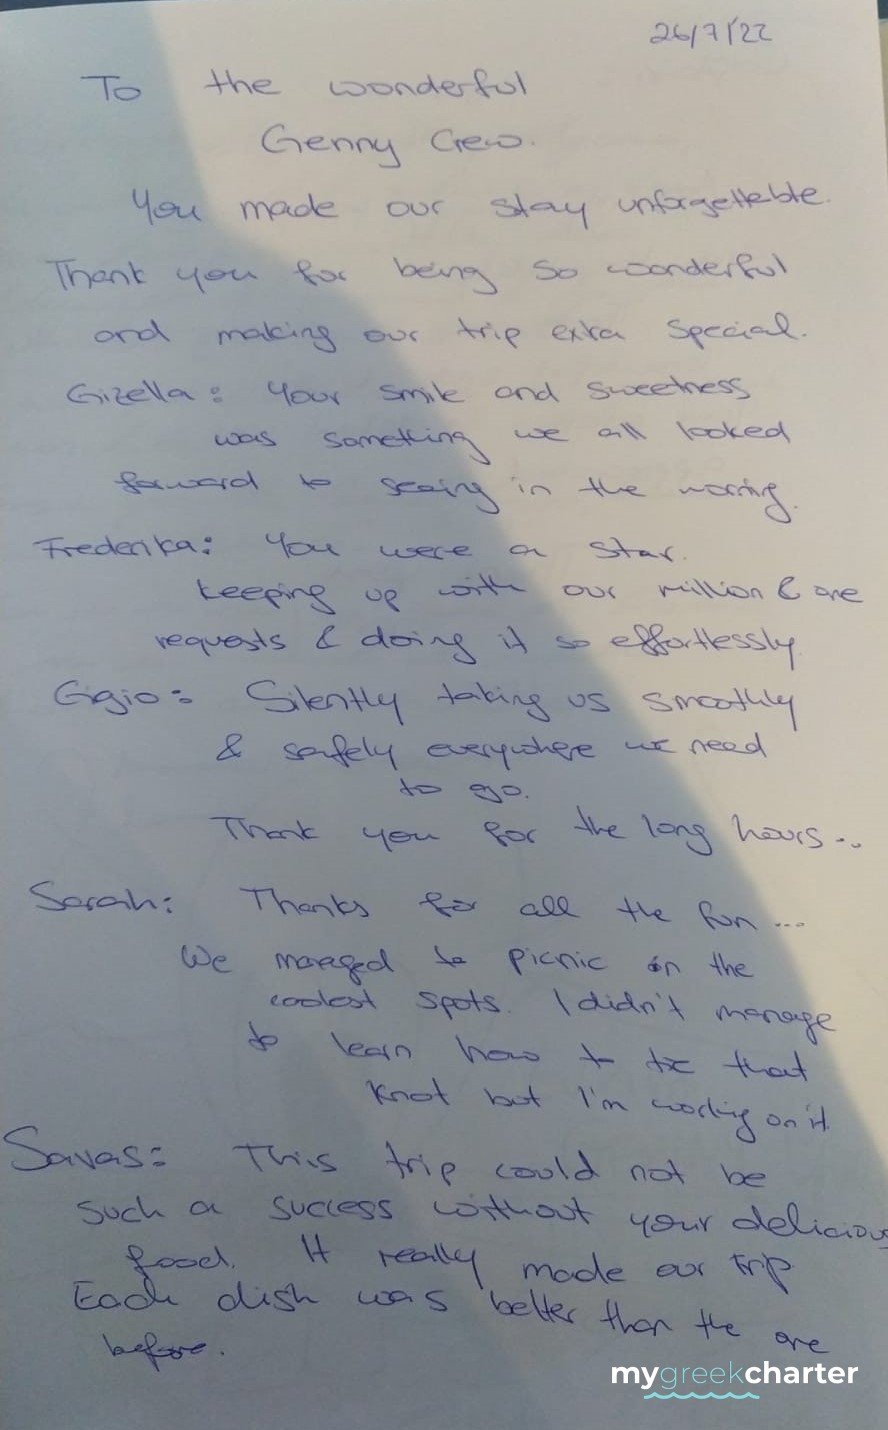 26/7/22
To the wonderful
Genny Crew.
You made our stay unforgettable.
Thank you for being so wonderful
and making our trip extra special.
Gizella: Your smile and sweetness
was something we all looked
forward to seeing in the morning.
Frederika: You were a star.
keeping up with our million & one
requests & doing it so effortlessly
Gigio: Silently taking us smoothly
& safely everywhere we need
to go.
Thank you for the long hours...
Sarah: Thanks for all the fun...
We managed to picnic in the
coolest spots. I didn't manage
to learn how to tie that
knot but I'm working on it.
Savas: This trip could not be
such a success without your delicious
food. It really made our trip
Each dish was better than the one
before.
mygreekcharter